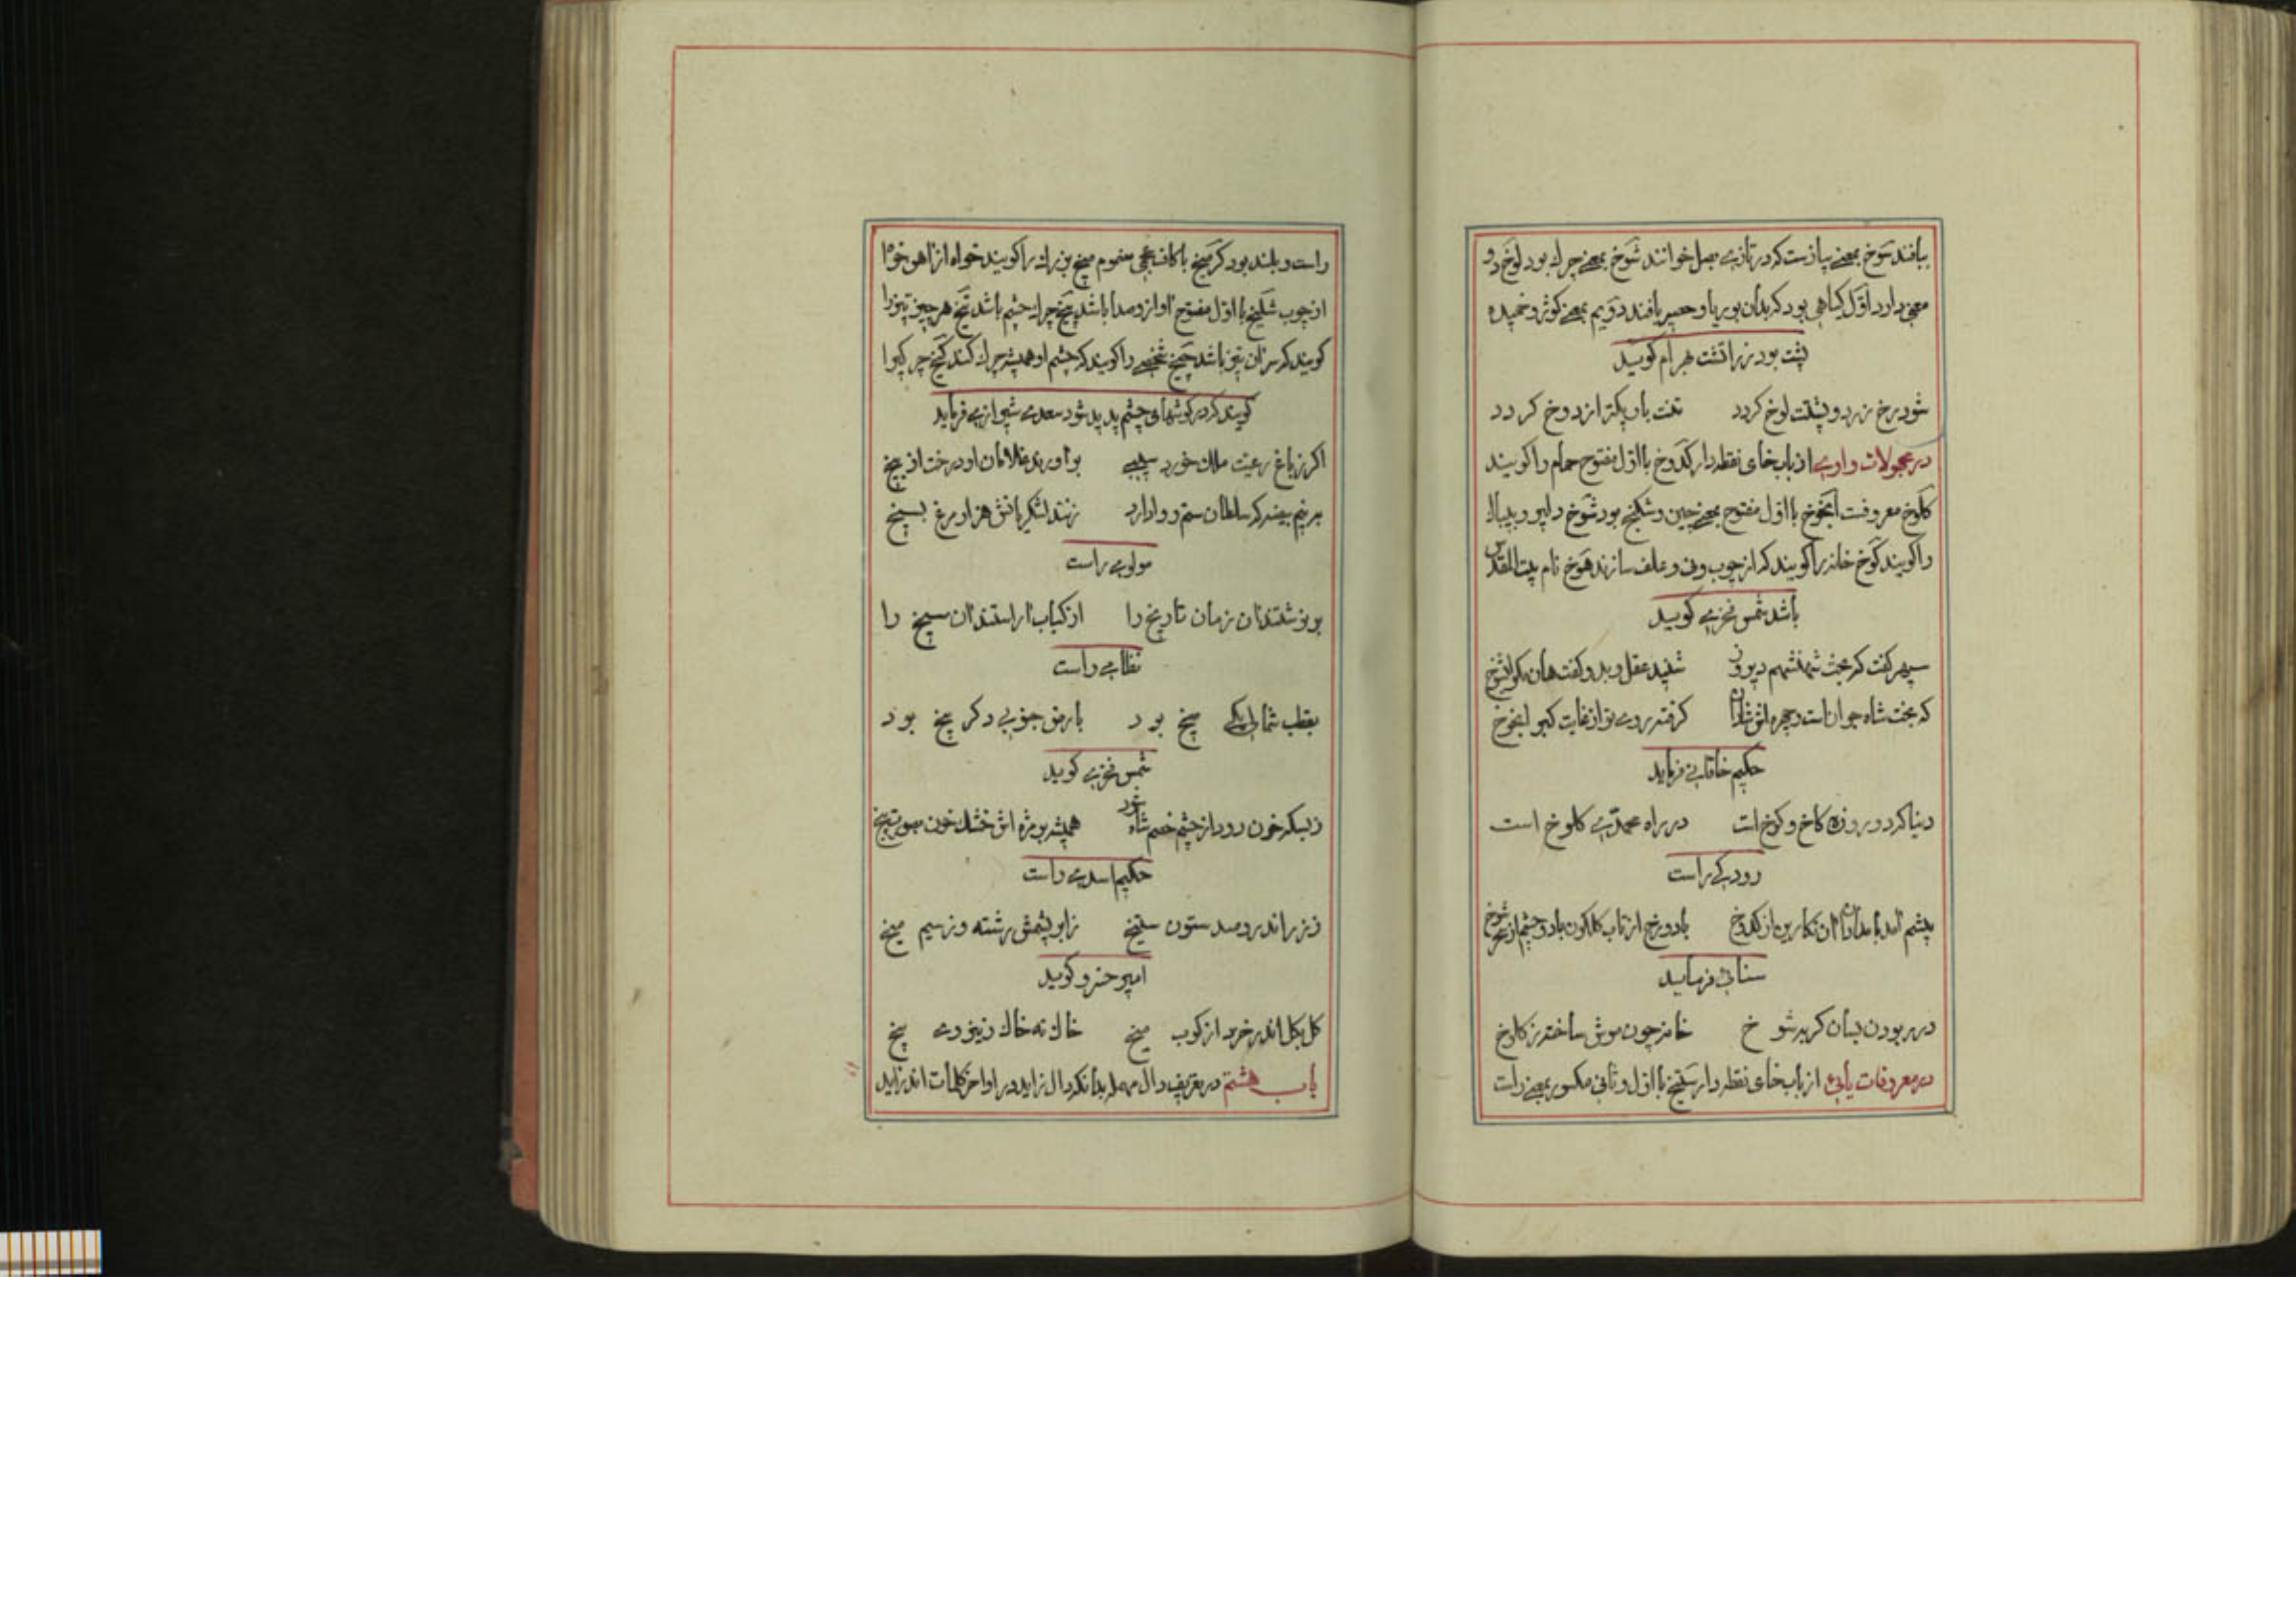 ببافند سَوخ بمعنی پیازست که در تازی بصل خوانند شَوخ بمعنی چرك بود لَوخ دو
معنی دارد اوّل گیاهی بود که بدان بوریا و حصیر بافند دوّیم بمعنی کوژ و خمیده
پشت بود زراتشت بهرام گوید
شود رخ زرد و پشتت لوخ گردد تنت باریکتر از دوخ گردد
در مجهولات واوی از باب خای نقطه دار گدَوخ با اوّل مفتوح حمام را گویند
کلَوخ معروفست انجَوخ با اوّل مفتوح بمعنی چین و شکنج بود شَوخ دلیر و بیباك
را گویند کَوخ خانه را گویند که از چوب و نی و علف سازند هَوخ نام بیت المقدّس
باشد شمس فخری گوید
سپهر گفت که بخت شهنشهم دیروز شنید عقل و بدو گفت هان مگوی شوخ
که بخت شاه جوان است و چهره اش شادان گرفته روی تو از غایت کبر انجوخ
حکیم خاقانی فرماید
دنیا که دو روزه کاخ و کوخ است در راه محمّدی کلوخ است
رودکی راست
پیشم آمد بامدادان آن نگارین از گدوخ با دو رخ از تاب گلگون با دو چشم از سحر شوخ
سنائی فرماید
در ربودن بسان گربه شوخ خانه چون موش ساخته ز کلوخ
در معروفات یائی از باب خای نقطه دار ستیخ با اوّل و ثانی مکسور بمعنی راست
راست و بلند بود گرمیخ با کاف عجمی مضموم میخ بزرك را گویند خواه از آهن خواه
از چوب شلیخ با اوّل مفتوح آواز و صدا باشد پیخ چرك چشم باشد تیخ هر چیز تیز را
گویند که سر آن تیز باشد چیخ شخصی را گویند که چشم او همیشه چرك کند کیخ چرکی را
گویند که در گوشهای چشم پدید شود سعدی شیرازی فرماید
اگر ز باغ رعیت ملك خورد سیبی برآورند غلامان او درخت از بیخ
به نیم بیضه که سلطان ستم روا دارد زنند لشکریانش هزار مرغ بسیخ
مولوی راست
برنوشتند آن زمان تاریخ را از کباب آراستند آن سیخ را
نظامی راست
بقطب شمالی یکی میخ بود بارض جنوبی دگر بیخ بود
شمس فخری گوید
ز بسکه خون رود از چشم خصم شاه شود همیشه بر مژه اش خشك خون بصورت پیخ
حکیم اسدی راست
ز زر اندرو صد ستون ستیخ ز ابریشمش رشته و ز سیم میخ
امیر خسرو گوید
گل بگل اندر خرد از کوب میخ خاك نه خاك و ز زیر وی بیخ
باب هشتم در تعریف دال مهمله بدانکه دال زاید در اواخر کلمات اندر آید